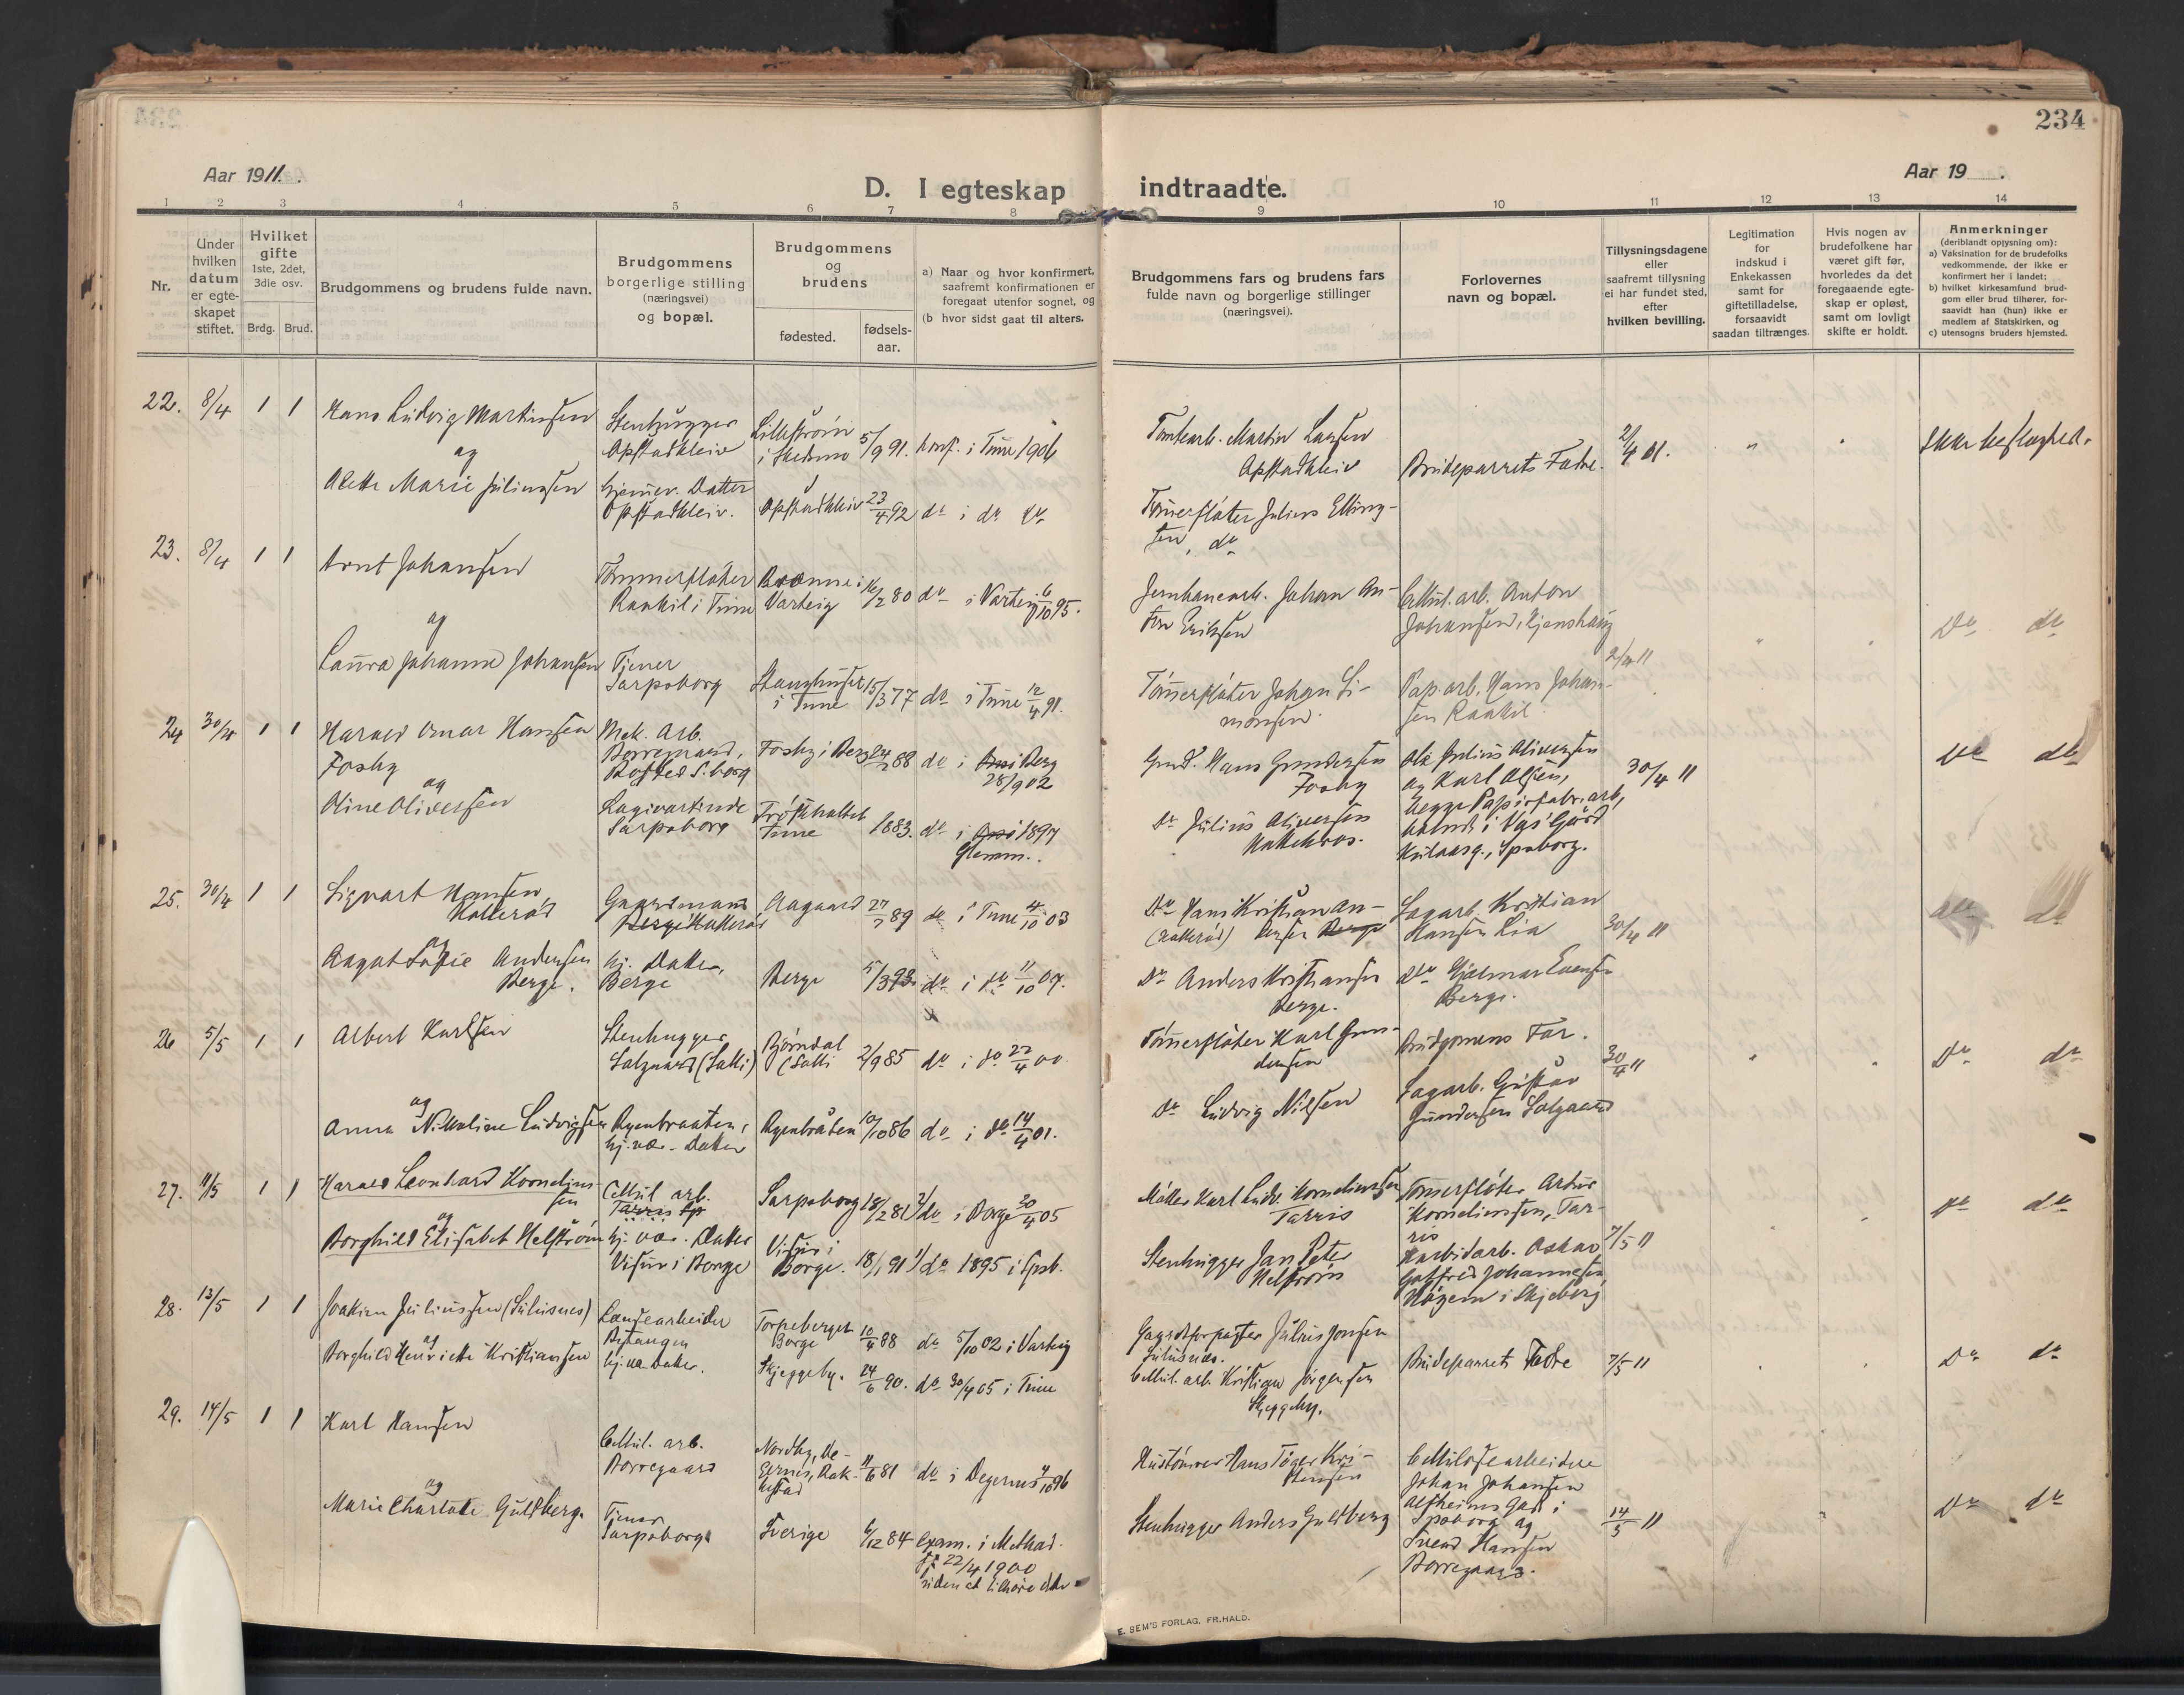 234
Aar 1911.
D. I egteskap indtraadte.
Aar 19 .
1 2 3 4 5 6 7 8 9 10 11 12 13 14
Nr.
Under hvilken datum er egteskapet stiftet.
Hvilket gifte
1ste, 2det, 3die osv.
Brdg. Brud.
Brudgommens og brudens fulde navn.
Brudgommens borgerlige stilling (næringsvei) og bopæl.
Brudgommens og brudens
fødested.
fødselsaar.
a) Naar og hvor konfirmert, saafremt konfirmationen er foregaat utenfor sognet, og
(b hvor sidst gaat til alters.
Brudgommens fars og brudens fars fulde navn og borgerlige stillinger (næringsvei).
Forlovernes navn og bopæl.
Tillysningsdagene eller saafremt tillysning ei har fundet sted, efter hvilken bevilling.
Legitimation for indskud i Enkekassen samt for giftetilladelse, forsaavidt saadan tiltrænges.
Hvis nogen av brudefolkene har været gift før, hvorledes da det foregaaende egteskap er opløst, samt om lovligt skifte er holdt.
Anmerkninger
(deriblandt oplysning om):
a) Vaksination for de brudefolks vedkommende, der ikke er konfirmert her i landet;
b) hvilket kirkesamfund brudgom eller brud tilhører, forsaavidt han (hun) ikke er medlem af Statskirken, og
c) utensogns bruders hjemsted.
22. 8/4 1 1
Hans Ludvig Martinsen
og
Alette Marie Juliussen
Stenhugger
Opstadkleiv
hjemmev. Datter
Opstadkleiv.
Lillestrøm
i Skedsmo 5/9 91. konf. i Tune 1906
Opstadkleiv 23/4 92 do i do do
Tomtearb. Martin Larsen
Opstadkleiv
Tømmerfløter Julius Elling-
sen, do
Brudeparrets Fædre.
2/4 01.
23. 8/4 1 1
Arnt Johansen
og
Laura Johanne Johansen
Tømmerfløter
Raakil i Tune
Tjener
Sarpsborg
Varteig 16/2 80 do i Varteig 6/10 95.
i Tune 15/3 77 do i Tune 12/4 91.
Jernbanearb. Johan An-
ton Eriksen
Tømmerfløter Johan Si-
monsen.
Cellul. arb. Anton
Johansen,
Pap. arb. Hans Johan-
sen Raakil
2/4 11
Do do
24 30/4 1 1
Harald Omar Hansen
Fosby
og
Oline Oliversen
Mek. Arb.
Borregaard,
Bosted S.borg
Sarpsborg
Fosby i Berg 24/2 88 do i Berg
28/9 02
Tune 1883. do i 1897
Glemm..
Grd. Hans Gundersen
Fosby
do Julius Oliversen
Ole Julius Oliversen
og Karl Olsen,
begge Papirfabr. arb,
30/4 11
Do do
25. 30/4 1 1
Sigvart Hansen
Hallerød
og
Aagot Sofie Andersen
Berge.
Gaardmand
hj. Datter,
Berge
Aagaard 27/7 89 do i Tune 4/10 03
Berge 5/3 93 do i do 11/10 07.
Do Hans Kristian An-
dersen
Do Anders Kristiansen
Berge.
Sagarb. Kristian
Hansen Lia
do Hjelmar Evensen
Berge.
30/4 11
26 5/5 1 1
Albert Karlsen
og
Anna Nikoline Ludvigsen
Stenhugger
Solgaard (Salli)
Agenbraaten,
hj. vær. Datter
Bjørndal
(Salli 2/9 85 do i do 22/4 00
Agenbråten 10/10 86 do i do 14/4 01.
Tømmerfløter Karl Gun-
dersen
do Ludvig Nilsen
Brudgomens Far.
Sagarb. Gustav
Gundersen Solgaard
30/4 11
Do do
27. 11/5 1 1
Harald Leonhard Kornelius-
sen
og
Borghild Elisabet Helstrøm
Cellul arb.
Tarris
hj. vær. Datter
Visur i Borge
Sarpsborg 18/2 81 do i Borge 30/4 05
Visur i
Borge. 18/1 91 do 1895 i
Møller Karl Ludv. Korneliussen
Tarris
Stenhugger Jan Peter
Helstrøm
Tømmerfløter Artur
Korneliussen, Tar-
ris
Karbidarb. Oskar
Gotfred Johannesen,
i Skjeberg
7/5 11
Do do
28. 13/5 1 1
Joakim Juliussen (Juliusnes)
og
Borghild Henriette Kristiansen
Landearbeider
hj. vær Datter.
Torpeberget
Borge 10/4 88 do 5/10 02 i Varteig
Skjeggeby. 24/6 90. do 30/4 05 i Tune
Gaardforpagter Julius Jonsen
Juliusnes.
Cellul. arb. Kristian Jørgensen
Skjeggeby.
Brudeparrets Fædre
7/5 11
Do do
29. 14/5 1 1
Karl Hansen
og
Marie Charlotte Guldberg.
Cellul. arb.
Borregaard
Tjener
Sarpsborg
Nordby, De-
gernes, Rak-
kestad 11/6 81 do i Degernes 4/10 96
Sverige 6/12 84 Exam. i Metod.
22/4 1900
Hustømrer Hans Kri-
stensen
Stenhugger Anders Guldberg
Cellulosearbeidere
Johan Johansen
Alfheims Gad i
Spsborg og
Svend Hansen
Borregaard.
14/5 11
Do do
E. SEM'S FORLAG, FR.HALD.